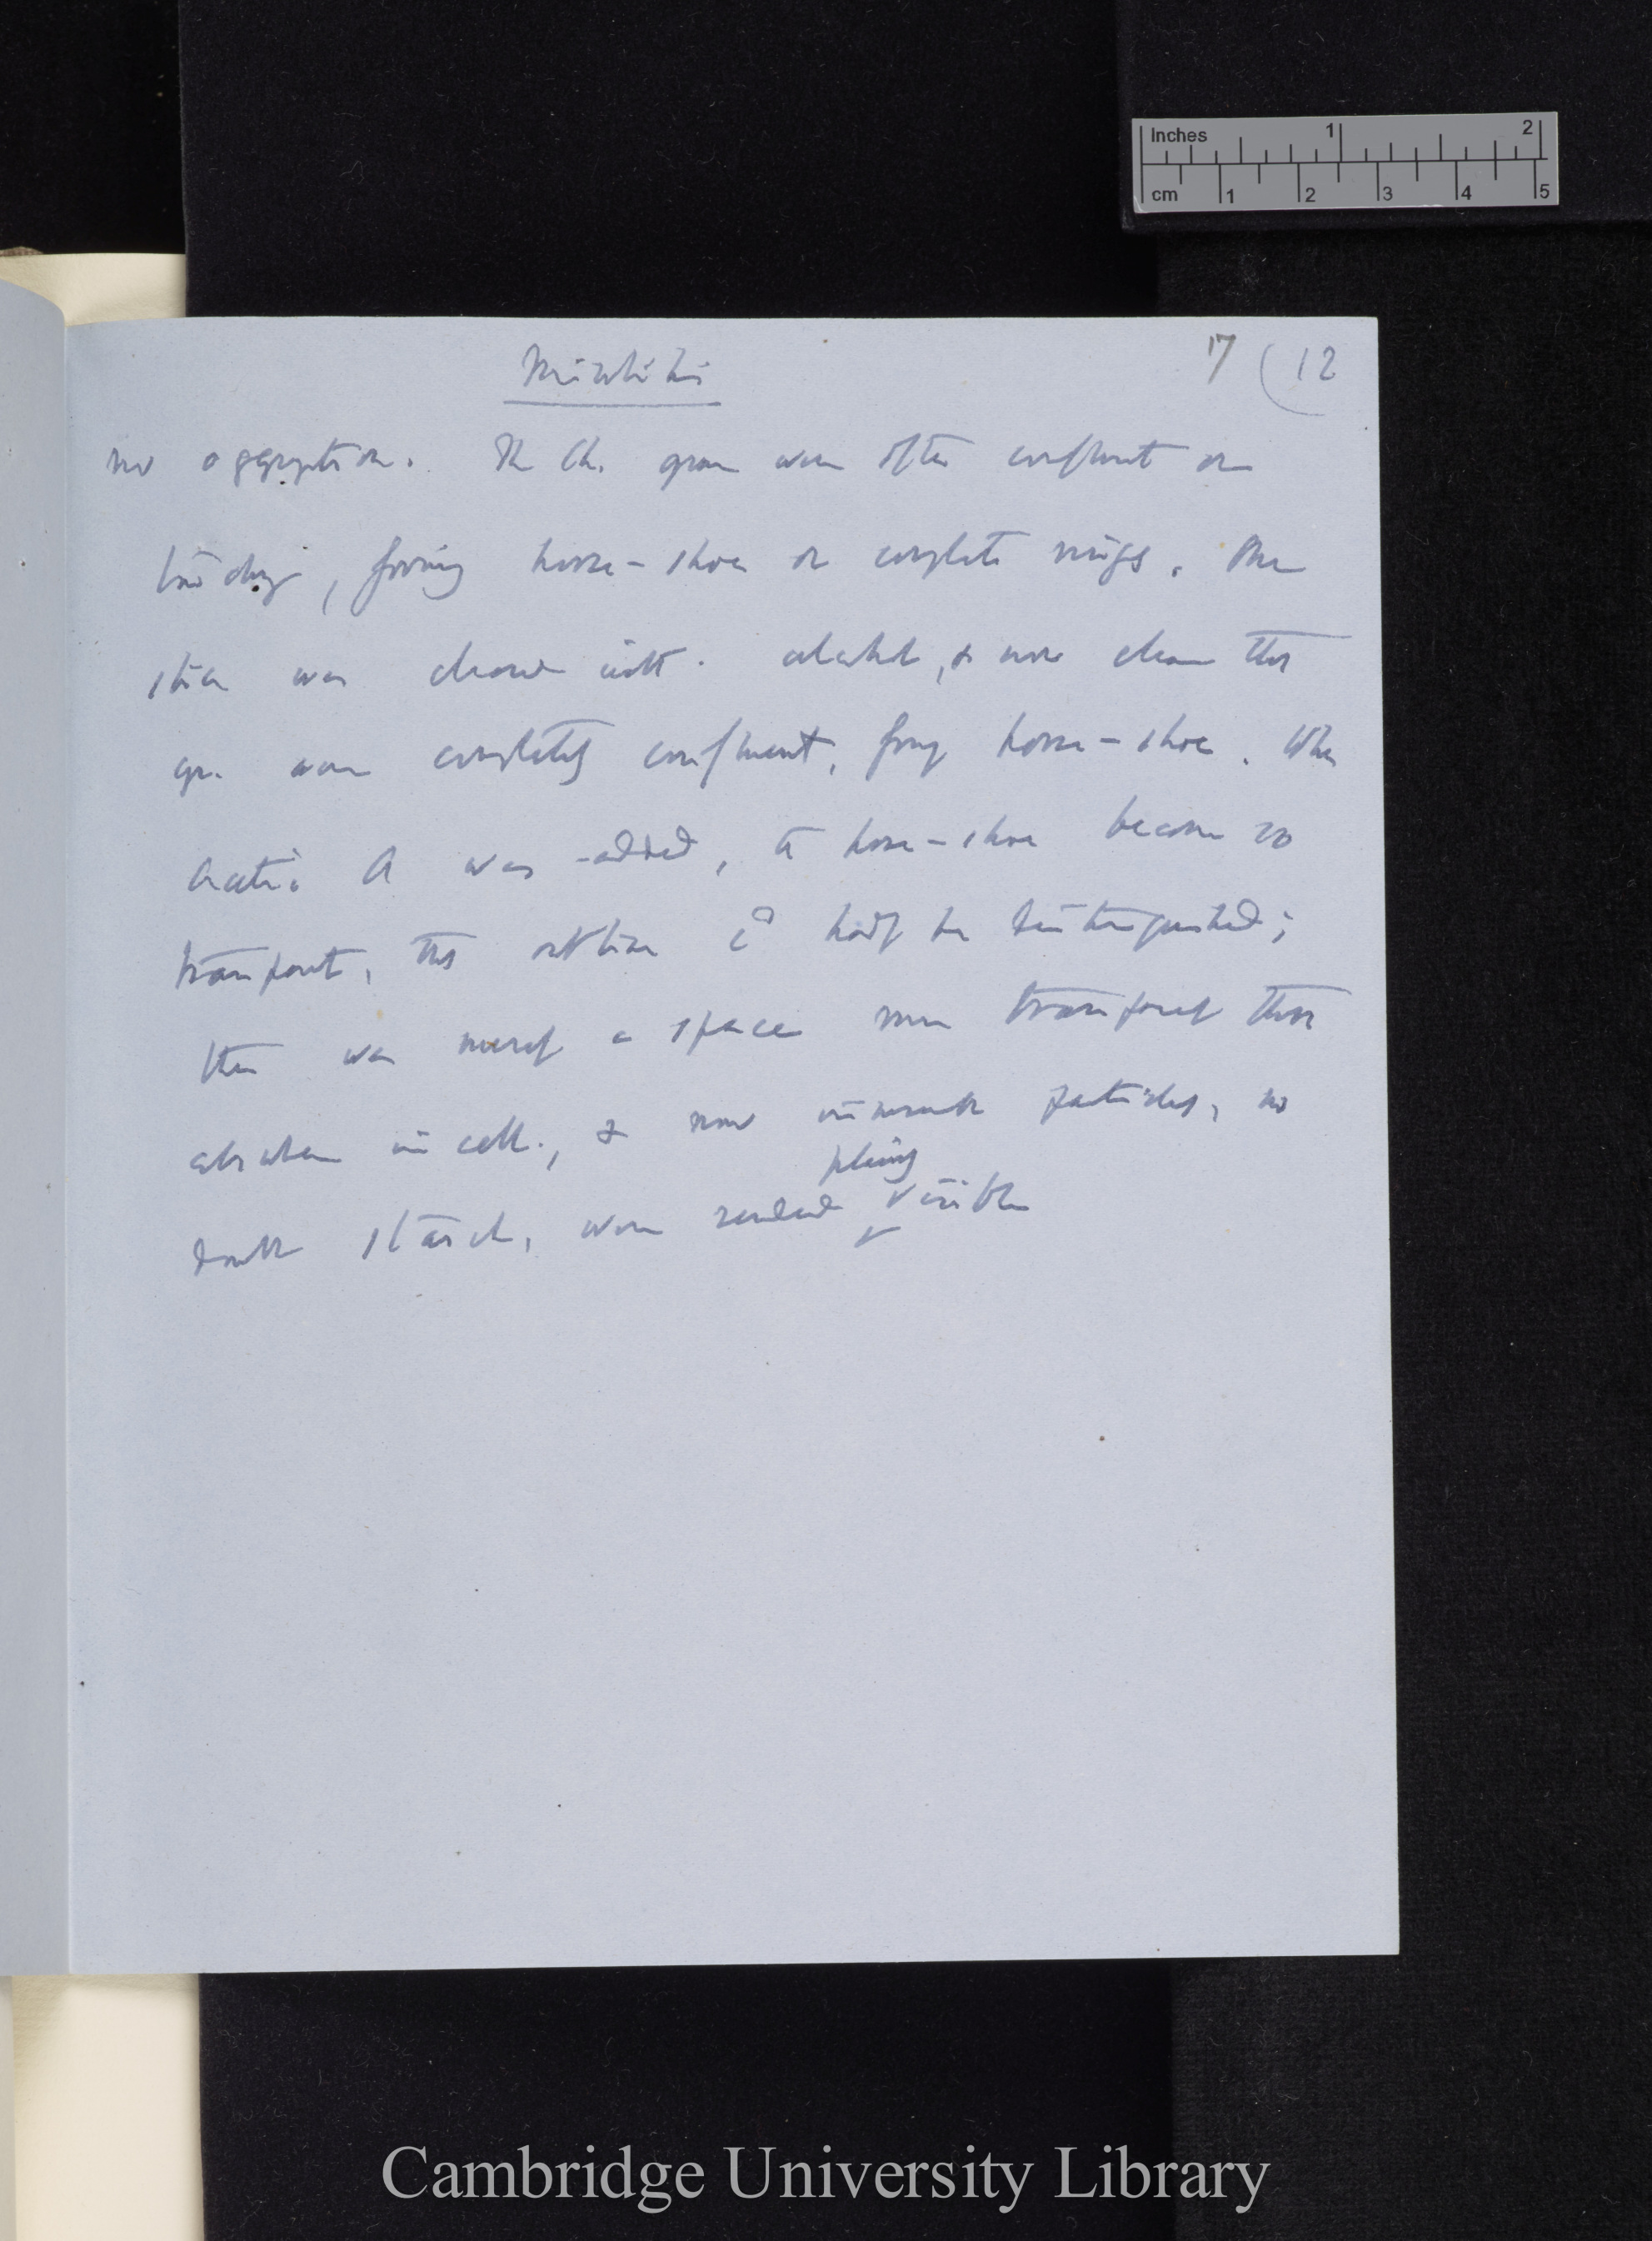 Inches 1 2
cm 1 2 3 4 5
17 (12
no aggregation. The Ch. grains were often confluent or
touching, forming horse-shoes or complete rings. One
slice was cleared with alcohol, & now clean the
gr. were completely confluent, forming horse-shoe. When
Acetic A was added, the horse-shoe became so
transparent, the outline cd hardly be distinguished;
there was merely a space more transparent than
elsewhere in cell., & now innumerable particles, no
doubt starch, were rendered plainly visible
Cambridge University Library